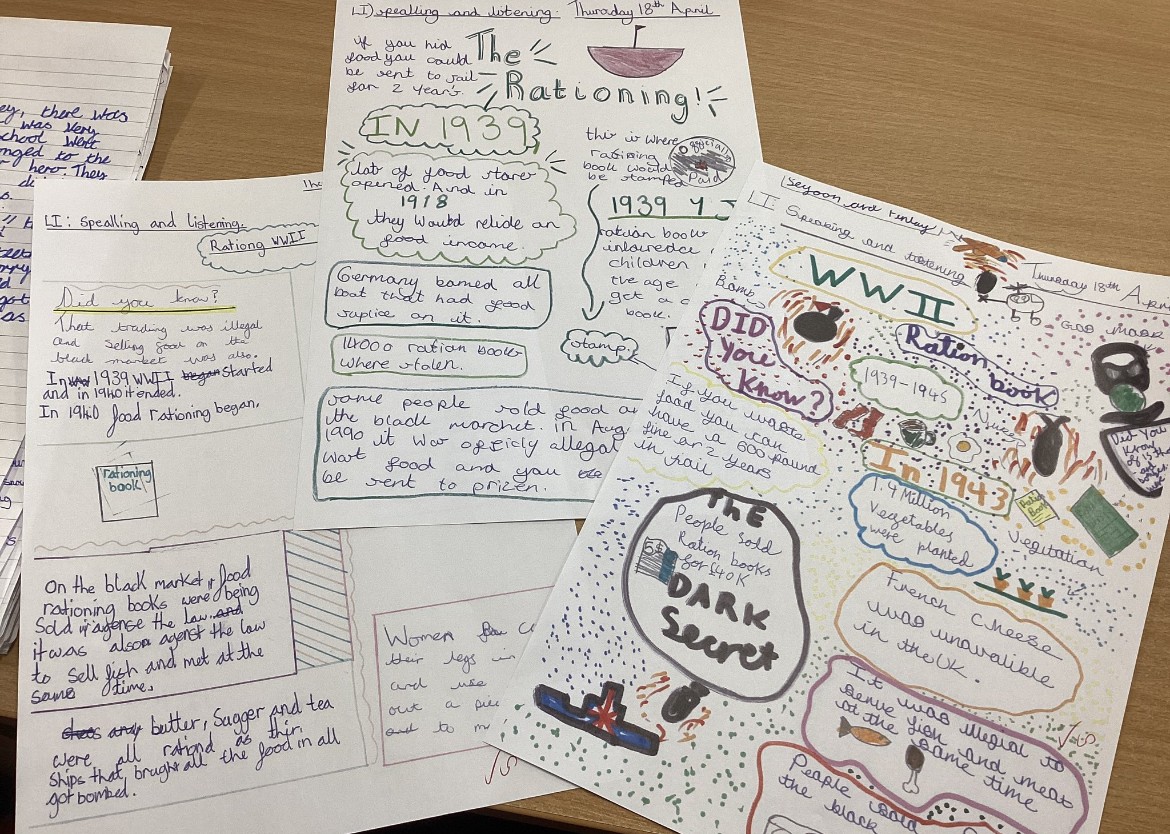 ey, there was
was very
school went
nged to the
hero. They
LI: Spealling and listening.
Rationg WWII
Did you know?
That trading was illegal
and selling food on the
black market was also.
In 1939 WWII started
and in 1940 it ended.
In 1940 food rationing began.
rationing
book
On the black market, food
rationing books were being
Sold agense the law
it was also agenst the law
to sell fish and met at the
same time.
butter, Sugger and tea
were all rationd as thir
ships that brught all the food in all
got bombed.
Women
their legs in
and use
out a pie
and to m
LI) spealling and listening. Thursday 18th April
if you hid
food you could
be sent to jail
for 2 years.
The
Rationing!
IN 1939
lot of food stores
opened. And in
1918
they would relide on
food income.
Germany bomed all
boat that had food
suplise on it.
14000 ration books
where stolen.
some people sold food
the black marchet. in Aug
1990 it was officly allegal
wast food and you
be sent to prizen.
this is where
rationing
book would
be stamped
officially
Paid
1939 4 J
ration book
children
the age
get a
book.
stamp.
Seyoon and Finley
LI: Speaking and listening
Thursday 18th April
WWII
Bomb
DID
You
Know?
Ration
book
Gas mask
1939-1945
If you waste
food you can
have a 500 pound
fine or 2 years
in jail
Nukes
Did You
Know
In 1943
1.4 Million
Vegetables
were planted
Ration
Book
Vegitation
The
People sold
Ration books
for £40K
DARK
Secret
French Cheese
was unavalible
in the UK.
It was illegial to
serve fish and meat
at the same time
People sold
the black